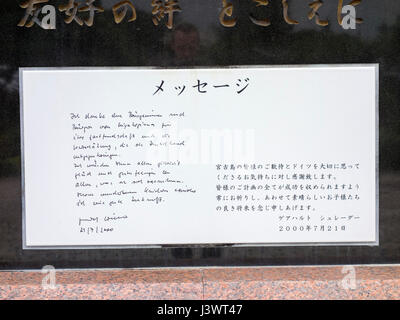 友好の絆 とこしえに
メッセージ
Ich danke den Bürgerinnen und
Bürgern von
ihre Gastfreundschaft und die
die sie Deutschland
entgegenbringen.
Ich wünsche Ihnen allen
Glück und
allen, was sie sich vornehmen.
Ihren wunderbaren Kindern
ich eine gute Zukunft.
21/7/2000
宮古島の皆様のご歓待とドイツを大切に思って
くださるお気持ちに対し感謝致します。
皆様のご計画の全てが成功を収められますよう
常にお祈りし、あわせて素晴らしいお子様たち
の良き将来を念じ申しあげます。
ゲアハルト シュレーダー
2000年7月21日
alamy
alamy
Image ID: J3WT47
www.alamy.com